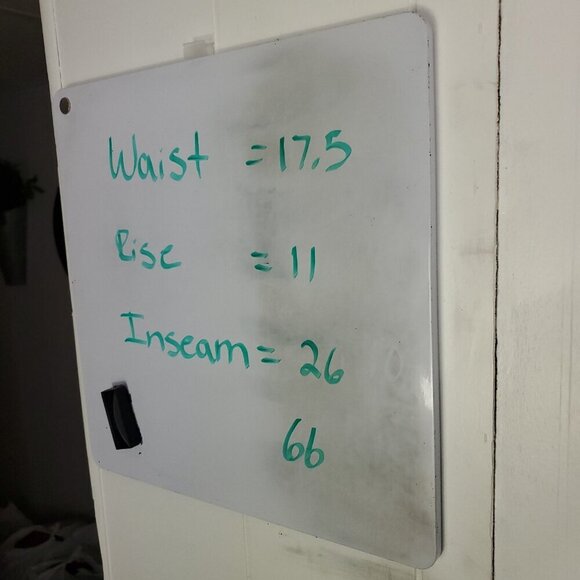 Waist = 17.5
Rise = 11
Inseam = 26
66